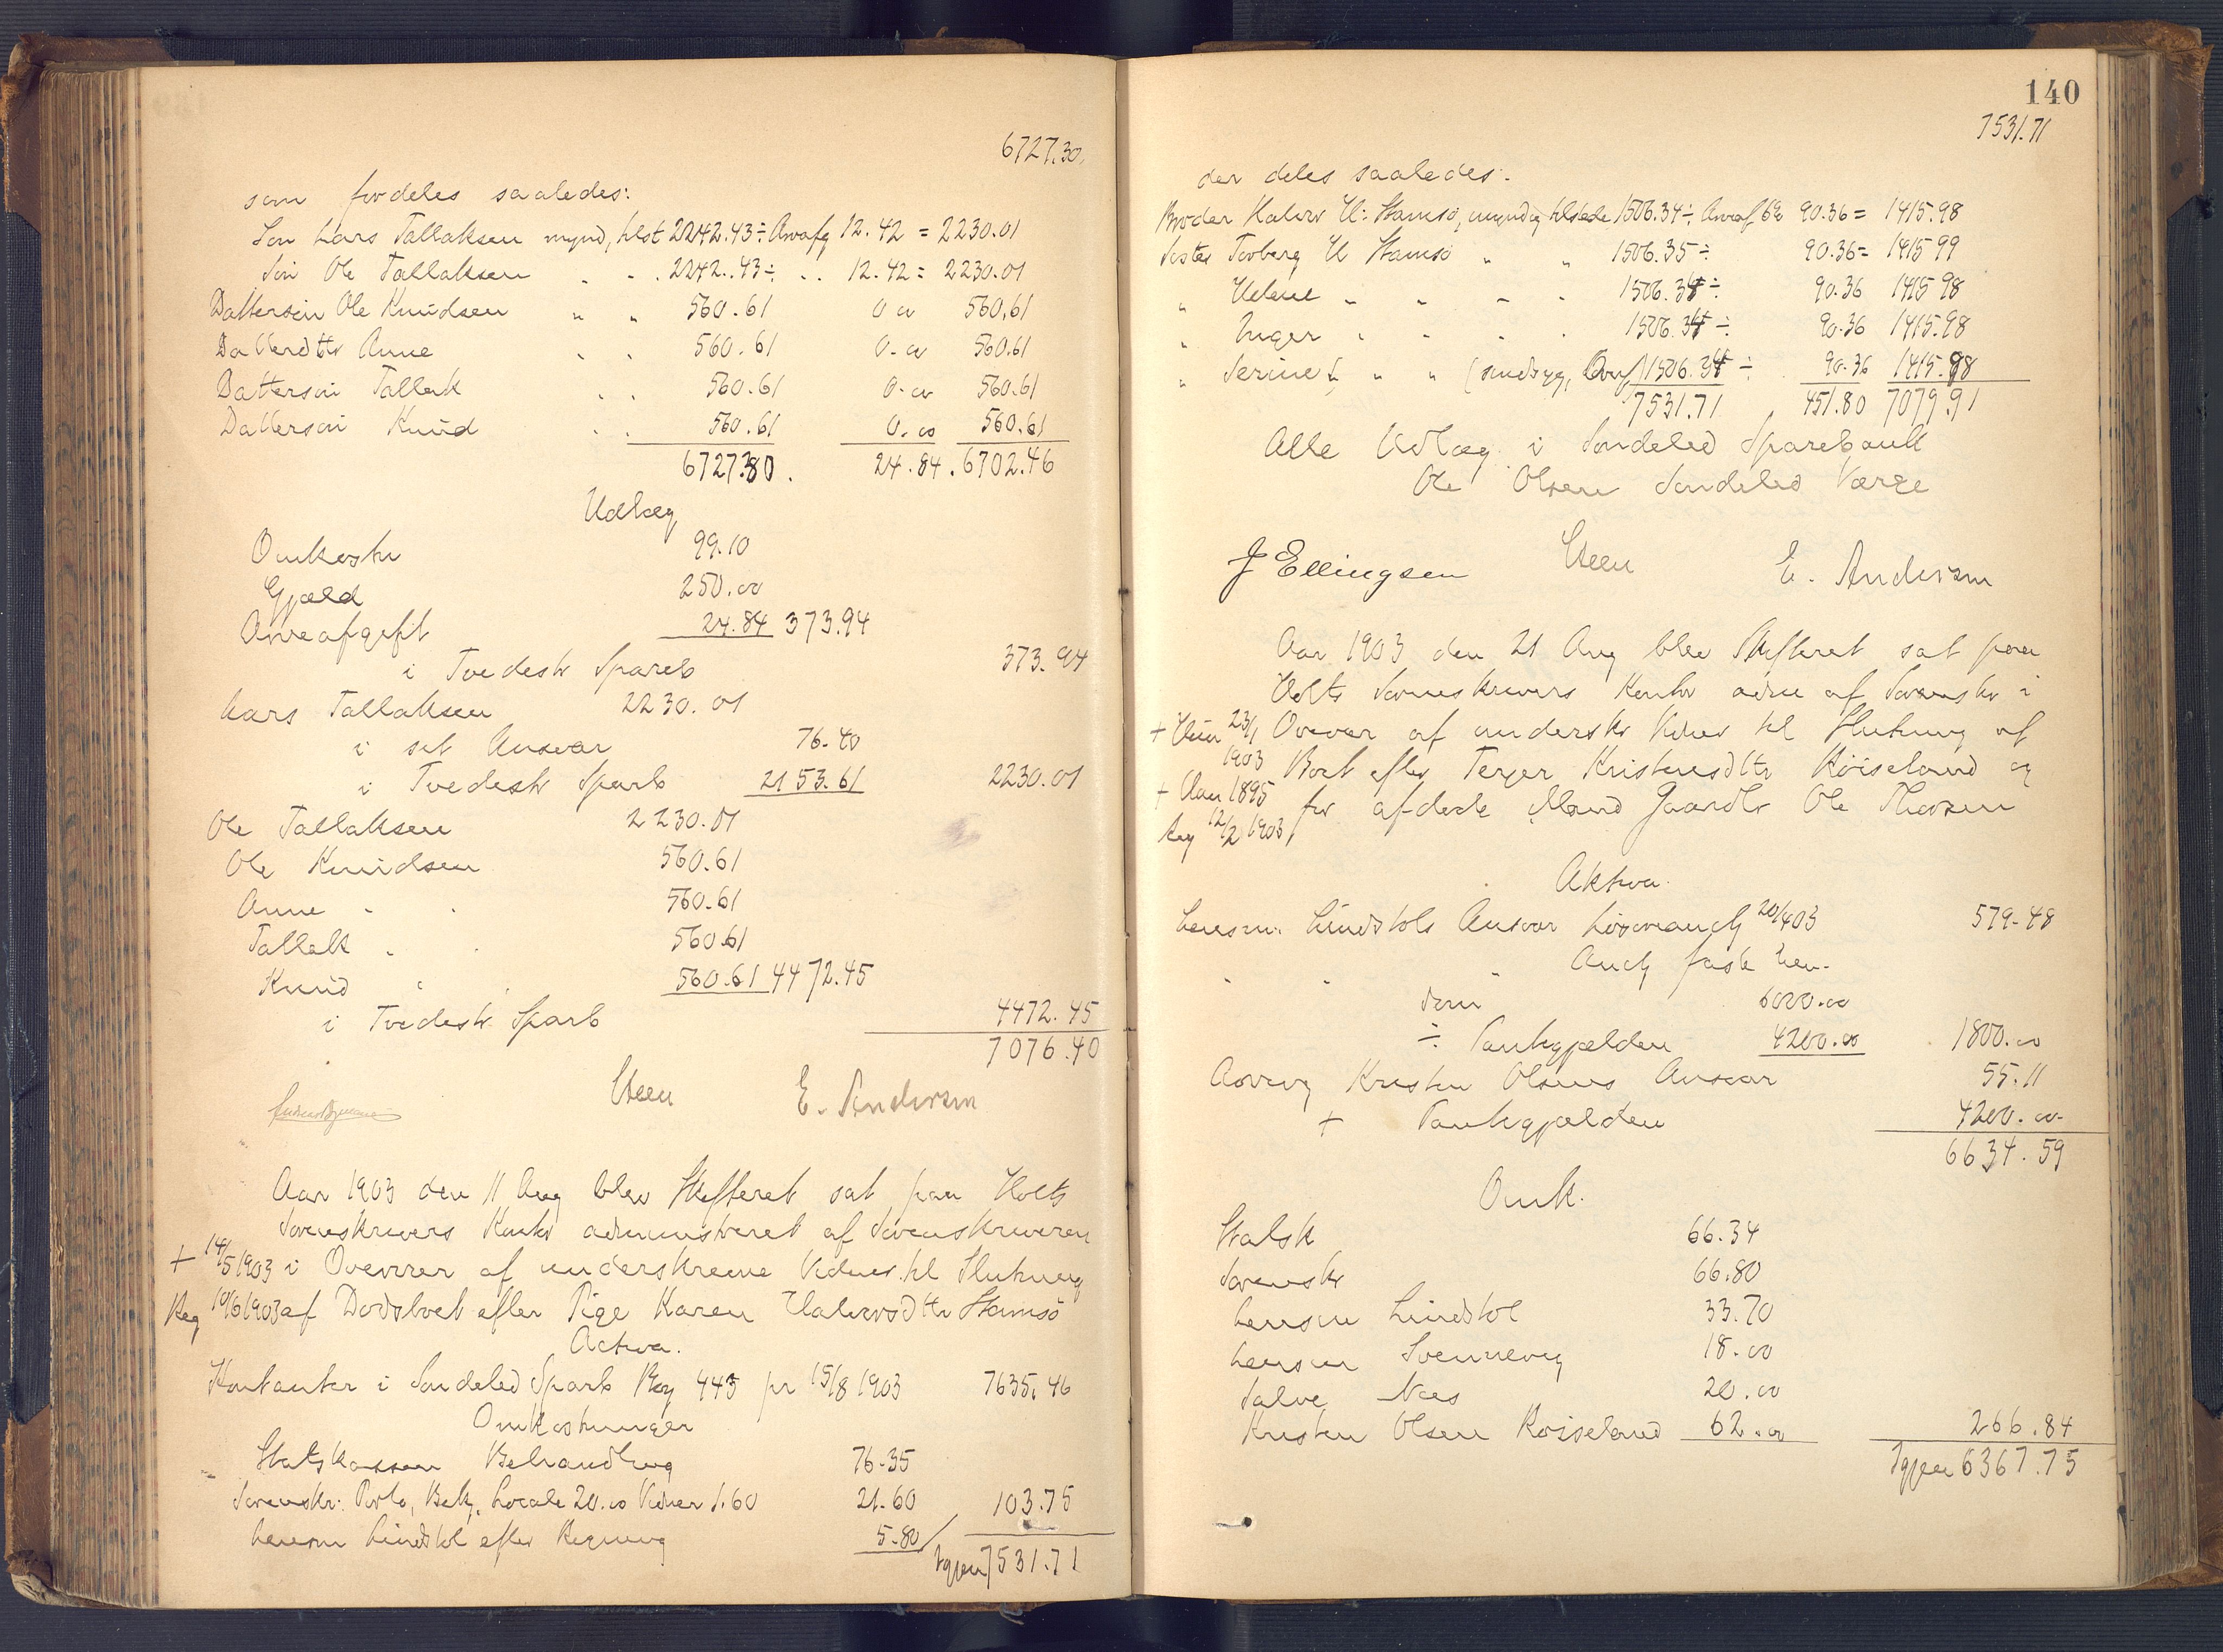 6727.30.
som fordeles saaledes:
Søn Lars Tallaksen mynd, tilst 2242.43 ÷ Arvafg 12.42 = 2230.01
Søn Ole Tallaksen " " 2242.43 ÷ " 12.42 = 2230.01
Dattersøn Ole Knudsen " " 560.61 0 00 560.61
Datterdttr Anne " " 560.61 0.00 560.61
Dattersøn Tallak " " 560.61 0.00 560.61
Dattersøn Knud " " 560.61 0.00 560.61
6727.30. 24.84. 6702.46
Udlæg
Omkostn 99.10
Gjæld 250.00
Arveafgift 24.84 373.94
i Tvedestr Spareb 373.94
Lars Tallaksen 2230.01
i sit Ansvar 76.40
i Tvedestr Sparb 2153.61 2230.01
Ole Tallaksen 2230.01
Ole Knudsen 560.61
Anne " 560.61
Tallak " 560.61
Knud " 560.61 4472.45
i Tvedestr Sparb 4472.45
7076.40
Steen E. Andersen
Aar 1903 den 11 Aug blev Skifteret sat paa Holts
Sorenskrivers Kontor administreret af Sorenskriveren
+ 14/5 1903 i Overvær af underskrevne Vidner til Slutning
Reg 10/6 1903 af Dødsboet efter Pige Karen Halvorsdttr Stamsø
Activa.
Kontanter i Søndeled Sparb Bog 443 pr 15/8 1903 7635.46
Omkostninger
Statskassen Behandling 76.35
Sorenskr: Porto, Bekj. Locale 20.00 Vidner 1.60 21.60 103.75
Lensm Lindstøl efter Regning 5.80
Igjen 7531.71
140
7531.71
der deles saaledes:
Broder Halvor H: Stamsø, myndig tilstede 1506.34 ÷ Arveaf 6% 90.36 = 1415.98
Søster Torberg H Stamsø " " 1506.35 ÷ 90.36 = 1415 99
" Helene " " " " 1506.34 ÷ 90.36 1415 98
" Inger " " " " 1506.34 ÷ 90.36 1415.98
" Serine " " " (sindssyg, Ovf) 1506.34 ÷ 90.36 1415.98
7531.71 451.80 7079.91
Alle Udlæg i Søndeled Sparebank
Ole Olsen Søndeled Værge
J Ellingsen Steen E. Andersen
Aar 1903 den 21 Aug blev Skifteret sat paa
Holts Sorenskrivers Kontor adm af Sorenskr i
+ Hun 23/1 1903 Overvær af underskr Vidner til Slutning af
Boet efter Terjer Kristensdttr Køiseland og
+ Han 1895 før afdøde Mand Gaardbr Ole Thorsen
Reg 12/2 1903
Aktiva.
Lensm: Lindstøls Ansvar Løsøreauch 20/4 03 579-48
" " " Auch faste Eien-
dom 6000.00
÷ Panhgjælden 4200.00 1800.00
Arving Kristen Olsens Ansvar 55.11
+ Panhgjælden 4200.00
6634.59
Omk.
Statsk 66.34
Sorenskr 66.80
Lensm Lindstøl 33.70
Lensm Svennevig 18.00
Salve Næs 20.00
Kristen Olsen Køiseland 62.00 266.84
Igjen 6367.75